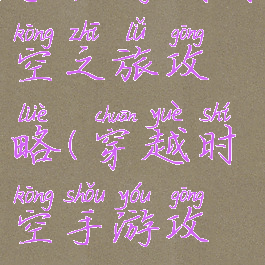 kōng zhī lǚ gōng
空之旅攻
lüè chuān yuè shí
略(穿越时
kōng shǒu yóu gōng
空手游攻